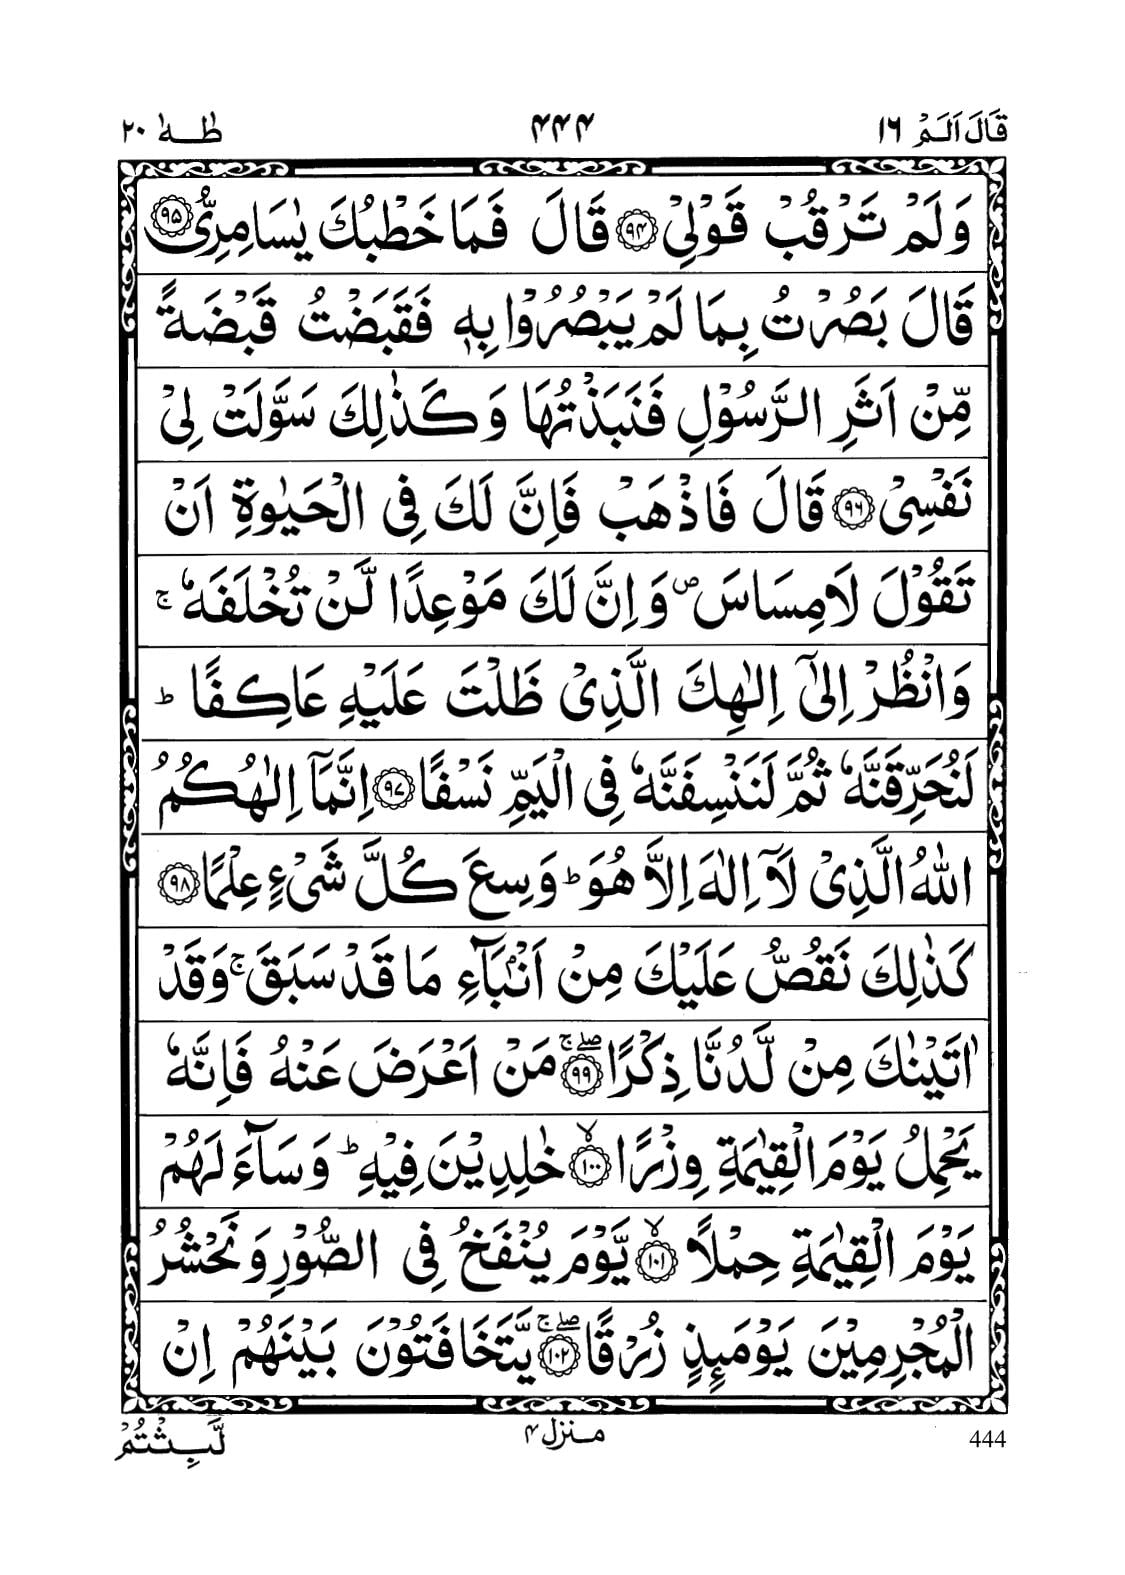 قَالَ اَلَمْ ١٦ ۴۴۴ طٰهٰ ٢٠
وَلَمْ تَرْقُبْ قَوْلِيْ ﴿۹۴﴾ قَالَ فَمَا خَطْبُكَ يٰسَامِرِيُّ ﴿۹۵﴾
قَالَ بَصُرْتُ بِمَا لَمْ يَبْصُرُوْا بِهٖ فَقَبَضْتُ قَبْضَةً
مِّنْ اَثَرِ الرَّسُوْلِ فَنَبَذْتُهَا وَكَذٰلِكَ سَوَّلَتْ لِيْ
نَفْسِيْ ﴿۹۶﴾ قَالَ فَاذْهَبْ فَاِنَّ لَكَ فِي الْحَيٰوةِ اَنْ
تَقُوْلَ لَا مِسَاسَ ۪ وَاِنَّ لَكَ مَوْعِدًا لَّنْ تُخْلَفَهٗ ۚ
وَانْظُرْ اِلٰٓى اِلٰهِكَ الَّذِيْ ظَلْتَ عَلَيْهِ عَاكِفًا ؕ
لَنُحَرِّقَنَّهٗ ثُمَّ لَنَنْسِفَنَّهٗ فِي الْيَمِّ نَسْفًا ﴿۹۷﴾ اِنَّمَآ اِلٰهُكُمُ
اللّٰهُ الَّذِيْ لَآ اِلٰهَ اِلَّا هُوَ ؕ وَسِعَ كُلَّ شَيْءٍ عِلْمًا ﴿۹۸﴾
كَذٰلِكَ نَقُصُّ عَلَيْكَ مِنْ اَنْۢبَآءِ مَا قَدْ سَبَقَ ۚ وَقَدْ
اٰتَيْنٰكَ مِنْ لَّدُنَّا ذِكْرًا ۖۚ ﴿۹۹﴾ مَنْ اَعْرَضَ عَنْهُ فَاِنَّهٗ
يَحْمِلُ يَوْمَ الْقِيٰمَةِ وِزْرًا ۙ ﴿۱۰۰﴾ خٰلِدِيْنَ فِيْهِ ؕ وَسَآءَ لَهُمْ
يَوْمَ الْقِيٰمَةِ حِمْلًا ۙ ﴿۱۰۱﴾ يَّوْمَ يُنْفَخُ فِي الصُّوْرِ وَنَحْشُرُ
الْمُجْرِمِيْنَ يَوْمَئِذٍ زُرْقًا ۖۚ ﴿۱۰۲﴾ يَّتَخَافَتُوْنَ بَيْنَهُمْ اِنْ
لَّبِثْتُمْ
منزل ۴
444